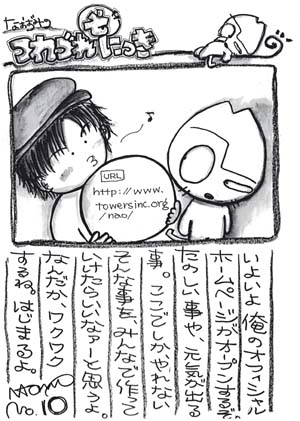 なおぴょん
つれづれもにっき
URL
http://www.
towersinc.org
/nao/
いよいよ俺のオフィシャル
ホームページがオープンするぞ。
たのしい事や、元気が出る
事。ここでしかやれない
そんな事を、みんなで作って
いけたらいいなァーと思うよ。
なんだか、ワクワク
するね。はじまるよ。
NAO
No.10